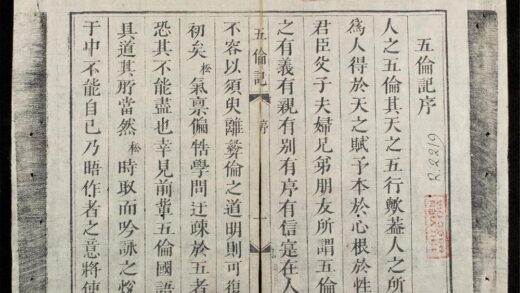 五倫記序
人之五倫其天之五行歟葢人之所
爲人得於天之賦予本於心根於性
君臣父子夫婦兄弟朋友所謂五倫
之有義有親有别有序有信寔在人
五倫記 序 一
不容以須臾離彜倫之道明則可復
初矣松氣禀偏牿學問迂疎於五者
恐其不能盡也幸見前輩五倫國語
具道其所當然松時取而吟詠之
于中不能自已乃晤作者之意將使
R.2219